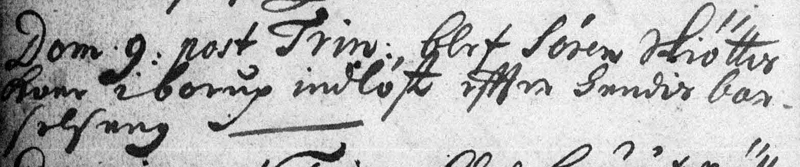 Dom. 9. post Trin: blef Sören Skiöttis
Kone i borup indlöst effter hendis bar-
selseng